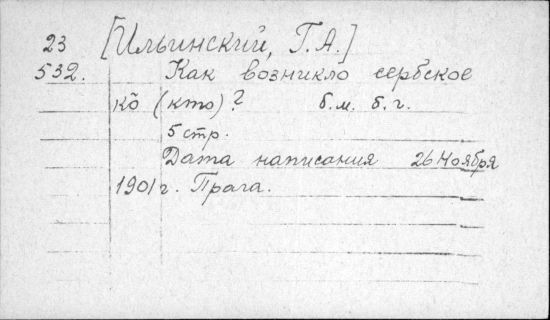 23 [Ильинский, Г.А.]
532. Как возникло сербское
кõ (кто)? б.м. б.г.
5 стр.
Дата написания 26 Ноября
1901 г. Прага.